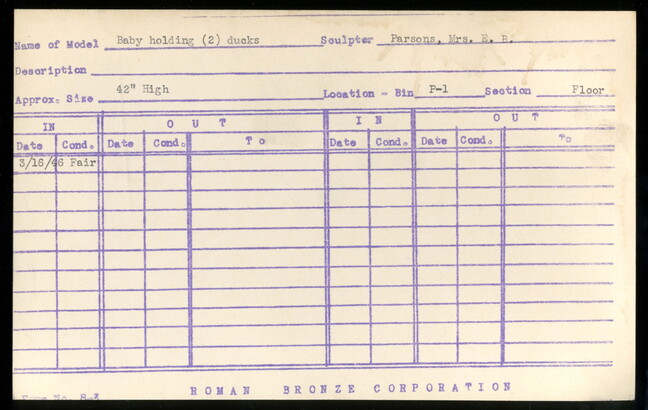 Name of Model Baby holding (2) ducks Sculptor Parsons, Mrs. E. B.
Description
Approx. Size 42" High Location - Bin P-1 Section Floor
IN OUT IN OUT
Date Cond. Date Cond. To Date Cond. Date Cond. To
3/16/46 Fair
Form No. 8-3 ROMAN BRONZE CORPORATION